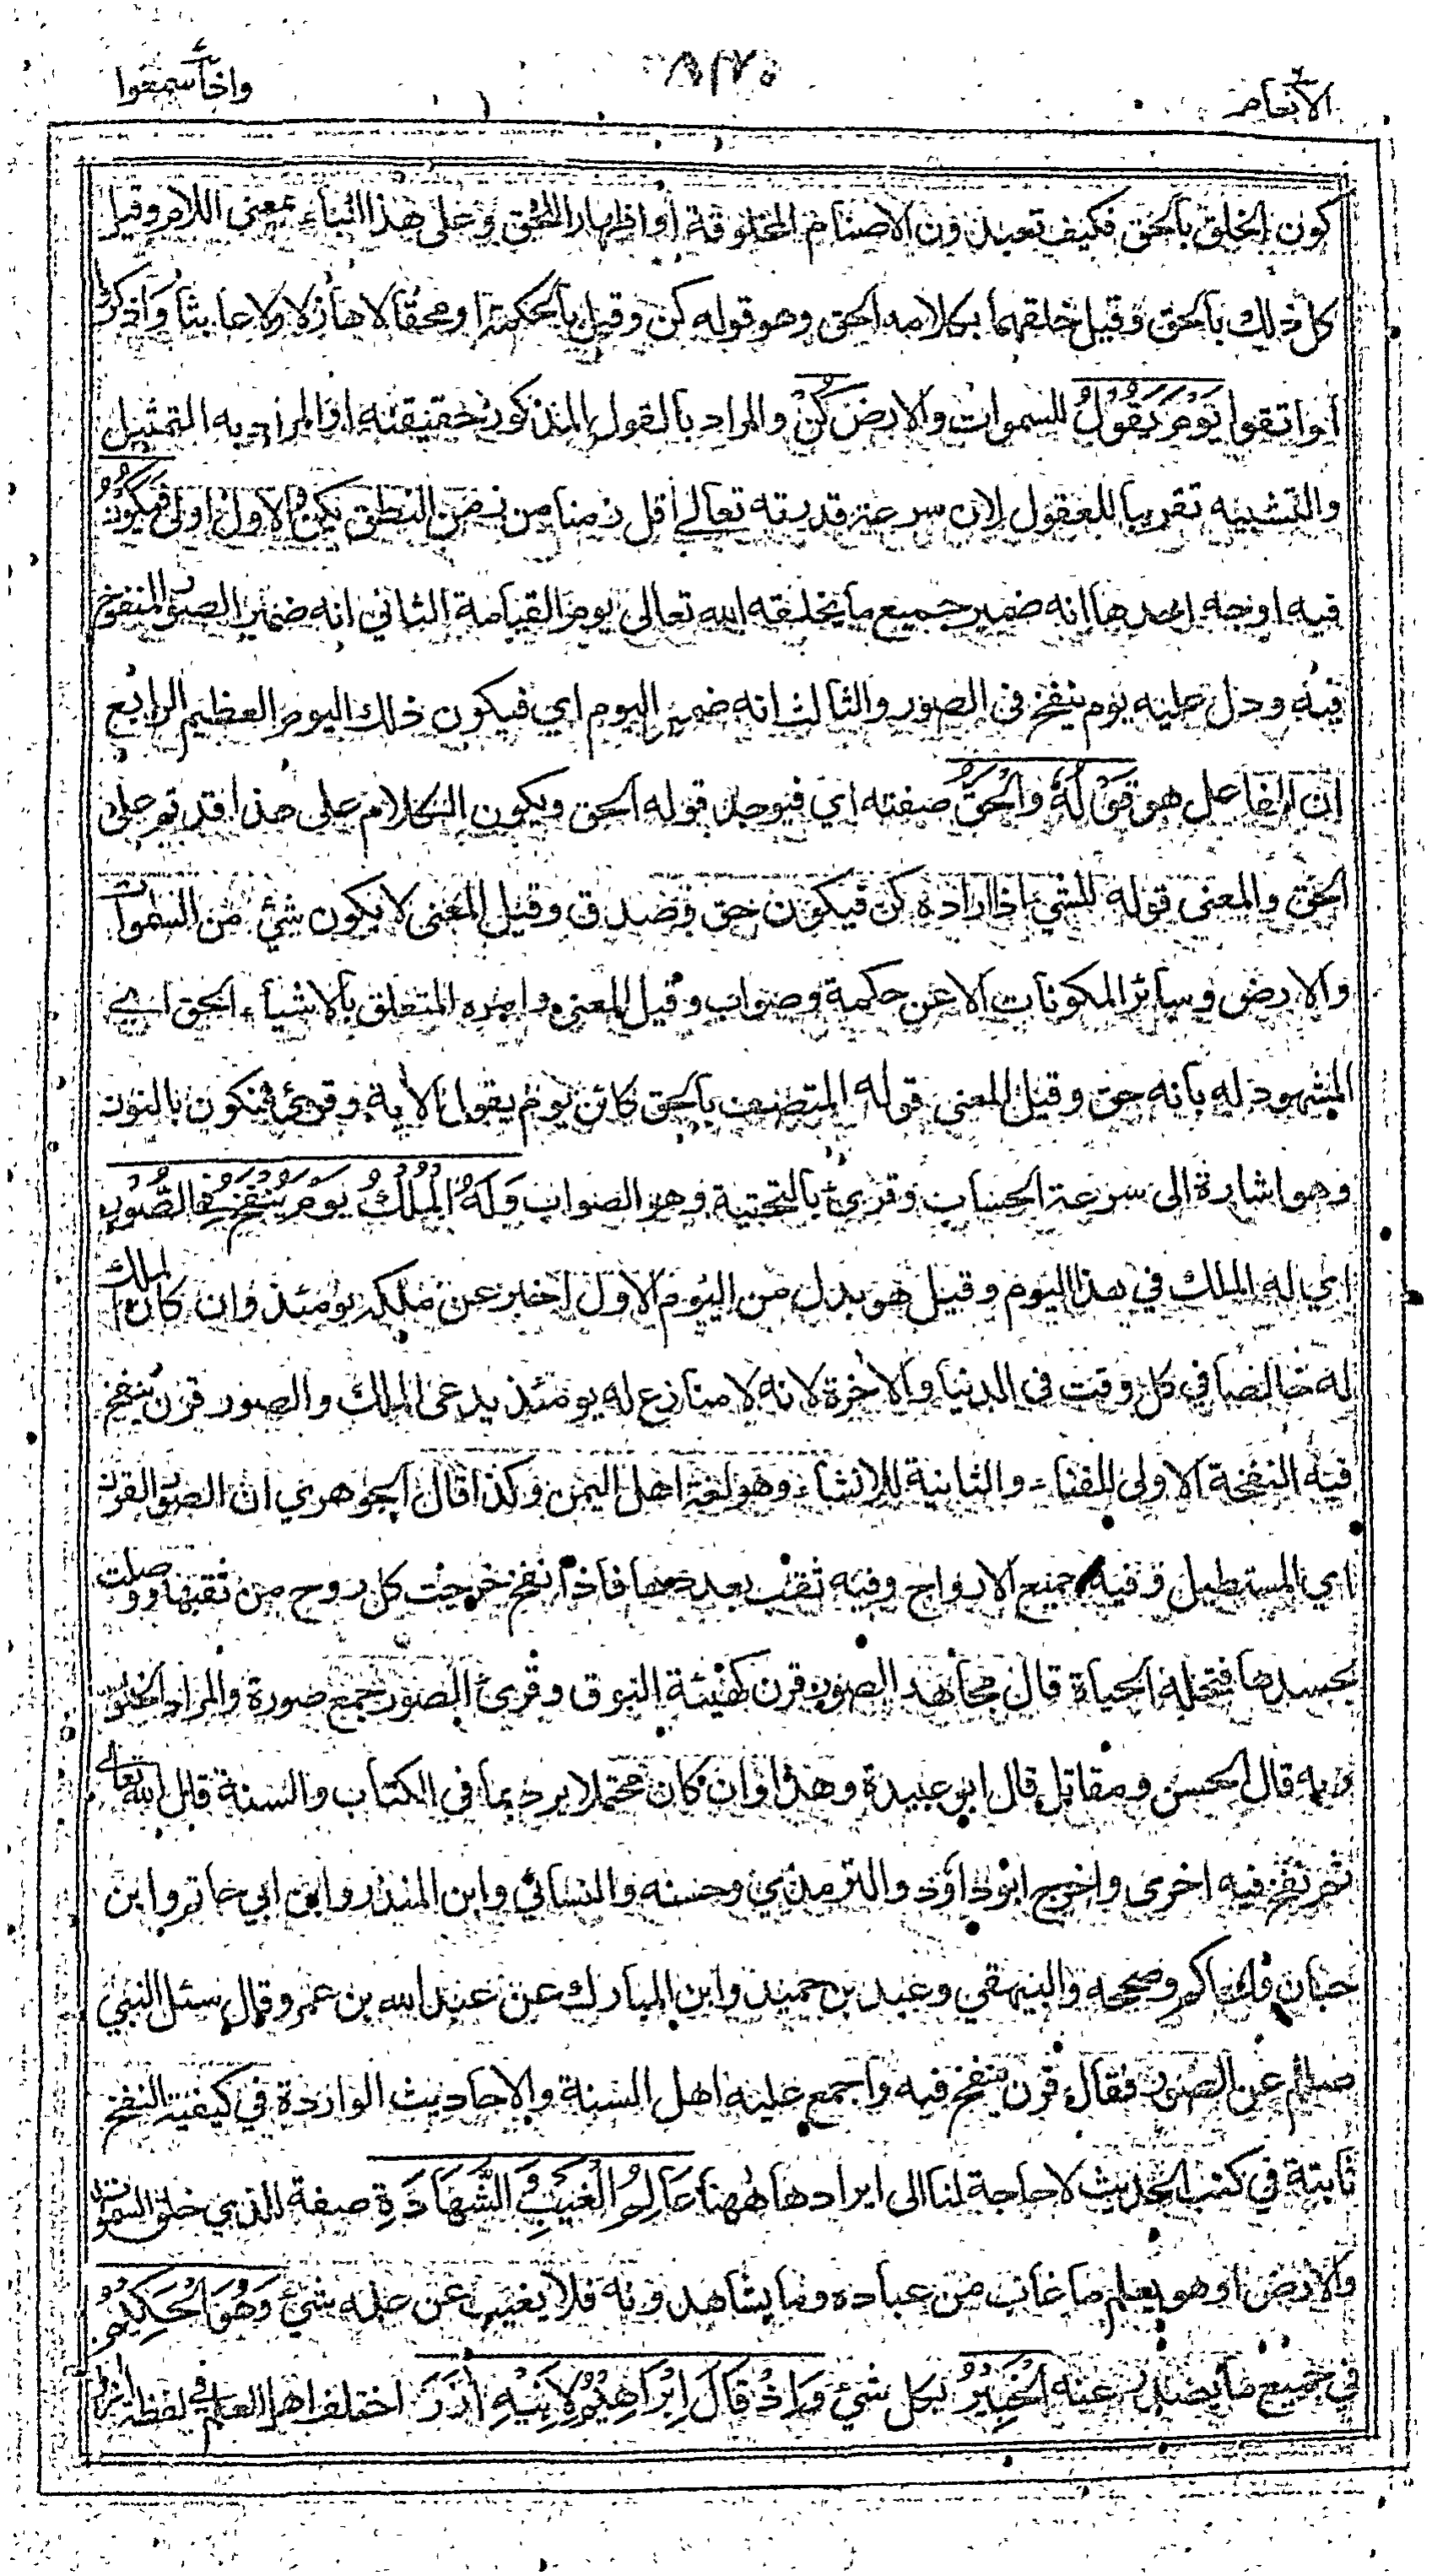 الانعام
واذا سمعوا
كون الخلق بالحق فكيف تعبدون الاصنام المخلوقة او اظهارا للحق وعلى هذا الباء بمعنى اللام وقيل
كل ذلك بالحق وقيل خلقهما بكلامه الحق وهو قوله كن وقيل بالحكمة او محقا لا هازلا ولا عابثا واذكروا
او اتقوا يَوْمَ يَقُوْلُ للسموات والارض كُنْ والمراد بالقول المذكور حقيقته او المراد به التمثيل
والتشبيه تقريبا للعقول لان سرعة قدرته تعالى اقل زمنا من زمن النطق بكن والاول اولى فَيَكُوْنُ
فيه اوجه احدها انه ضمير جميع ما يخلقه الله تعالى يوم القيامة الثاني انه ضمير الصور المنفوخ
فيه ودل عليه يوم ينفخ في الصور والثالث انه ضمير اليوم اي فيكون ذلك اليوم العظيم الرابع
ان الفاعل هو قَوْلُهُ وَالْحَقُّ صفته اي فيوجد قوله الحق ويكون الكلام على هذا قد تم على
الحق والمعنى قوله للشيء اذا اراده كن فيكون حق وصدق وقيل المعنى لا يكون شيء من السموات
والارض وسائر المكونات الا عن حكمة وصواب وقيل المعنى وامره المتعلق بالاشياء الحق اي
المشهود له بانه حق وقيل المعنى قوله المتصف بالحق كائن يوم يقول الاية وقرئ فنكون بالنون
وهو اشارة الى سرعة الحساب وقرئ بالتحتية وهو الصواب وَلَهُ الْمُلْكُ يَوْمَ يُنْفَخُ فِي الصُّوْرِ
اي له الملك في هذا اليوم وقيل هو بدل من اليوم الاول اخبر عن ملكه يومئذ وان كان الملك
له خالصا في كل وقت في الدنيا والاخرة لانه لا منازع له يومئذ يدعى الملك والصور قرن ينفخ
فيه النفخة الاولى للفناء والثانية للانشاء وهو لغة اهل اليمن وكذا قال الجوهري ان الصور القرن
اي المستطيل وفيه جميع الارواح وفيه ثقب بعددها فاذا نفخ خرجت كل روح من ثقبها ووصلت
بجسدها فتحله الحياة قال مجاهد الصور قرن كهيئة البوق وقرئ الصور جمع صورة والمراد الخلق
وبه قال الحسن ومقاتل قال ابو عبيدة وهذا وان كان محتملا يرد بما في الكتاب والسنة قال الله تعالى
ثم نفخ فيه اخرى واخرج ابو داود والترمذي وحسنه والنسائي وابن المنذر وابن ابي حاتم وابن
حبان والحاكم وصححه والبيهقي وعبد بن حميد وابن المبارك عن عبد الله بن عمرو قال سئل النبي
صللم عن الصور فقال قرن ينفخ فيه واجمع عليه اهل السنة والاحاديث الواردة في كيفية النفخ
ثابتة في كتب الحديث لا حاجة لنا الى ايرادها ههنا عَالِمُ الْغَيْبِ وَ الشَّهَادَةِ صفة للذي خلق السموات
والارض او هو يعلم ما غاب من عباده وما يشاهدونه فلا يغيب عن علمه شيء وَهُوَ الْحَكِيْمُ
في جميع ما يصدر عنه الْخَبِيْرُ بكل شيء وَاِذْ قَالَ اِبْرَاهِيْمُ لِاَبِيْهِ اٰزَرَ اختلف اهل العلم في لفظة ازر